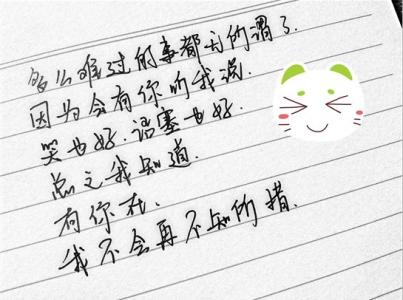 多么难过的事都无所谓了.
因为会有你听我说.
笑也好.语塞也好.
总之我知道.
有你在.
我不会再不知所措.